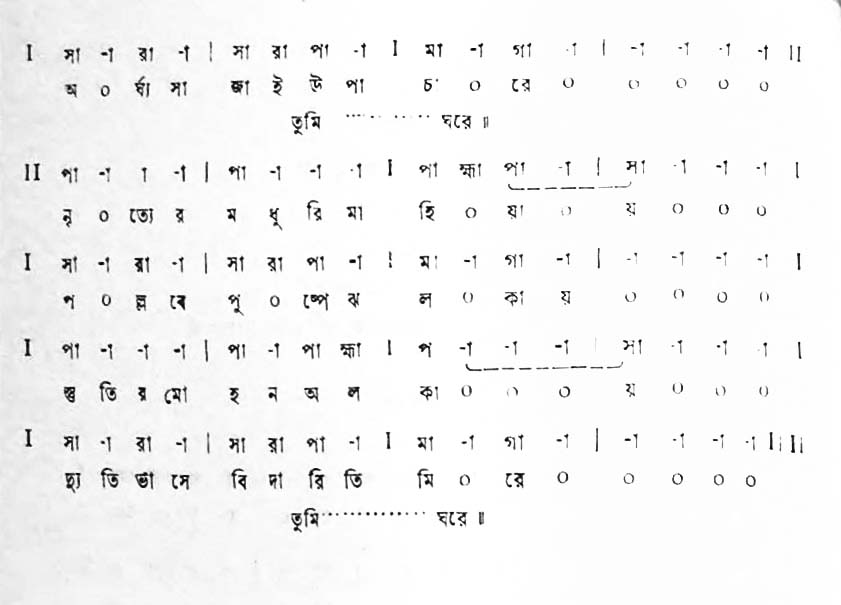 I সা -া রা -া | সা রা পা -া I মা -া গা -া | -া -া -া -া II
অ ০ র্ঘ্য সা জা ই উ পা চা ০ রে ০ ০ ০ ০ ০
তুমি ············ ঘরে ॥
II পা -া া -া | পা -া -া -া I পা হ্মা পা -া | সা -া -া -া I
নৃ ০ ত্যে র ম ধু রি মা হি ০ য়া ০ য় ০ ০ ০
I সা -া রা -া | সা রা পা -া I মা -া গা -া | -া -া -া -া I
প ০ ল্ল বে পু ০ ষ্পে ঝ ল ০ কা য় ০ ০ ০ ০
I পা -া -া -া | পা -া পা হ্মা I প -া -া -া | সা -া -া -া I
স্তু তি র মো হ ন অ ল কা ০ ০ ০ য় ০ ০ ০
I সা -া রা -া | সা রা পা -া I মা -া গা -া | -া -া -া -া IIII
দ্যু তি ভা সে বি দা রি তি মি ০ রে ০ ০ ০ ০ ০
তুমি ·············· ঘরে ॥